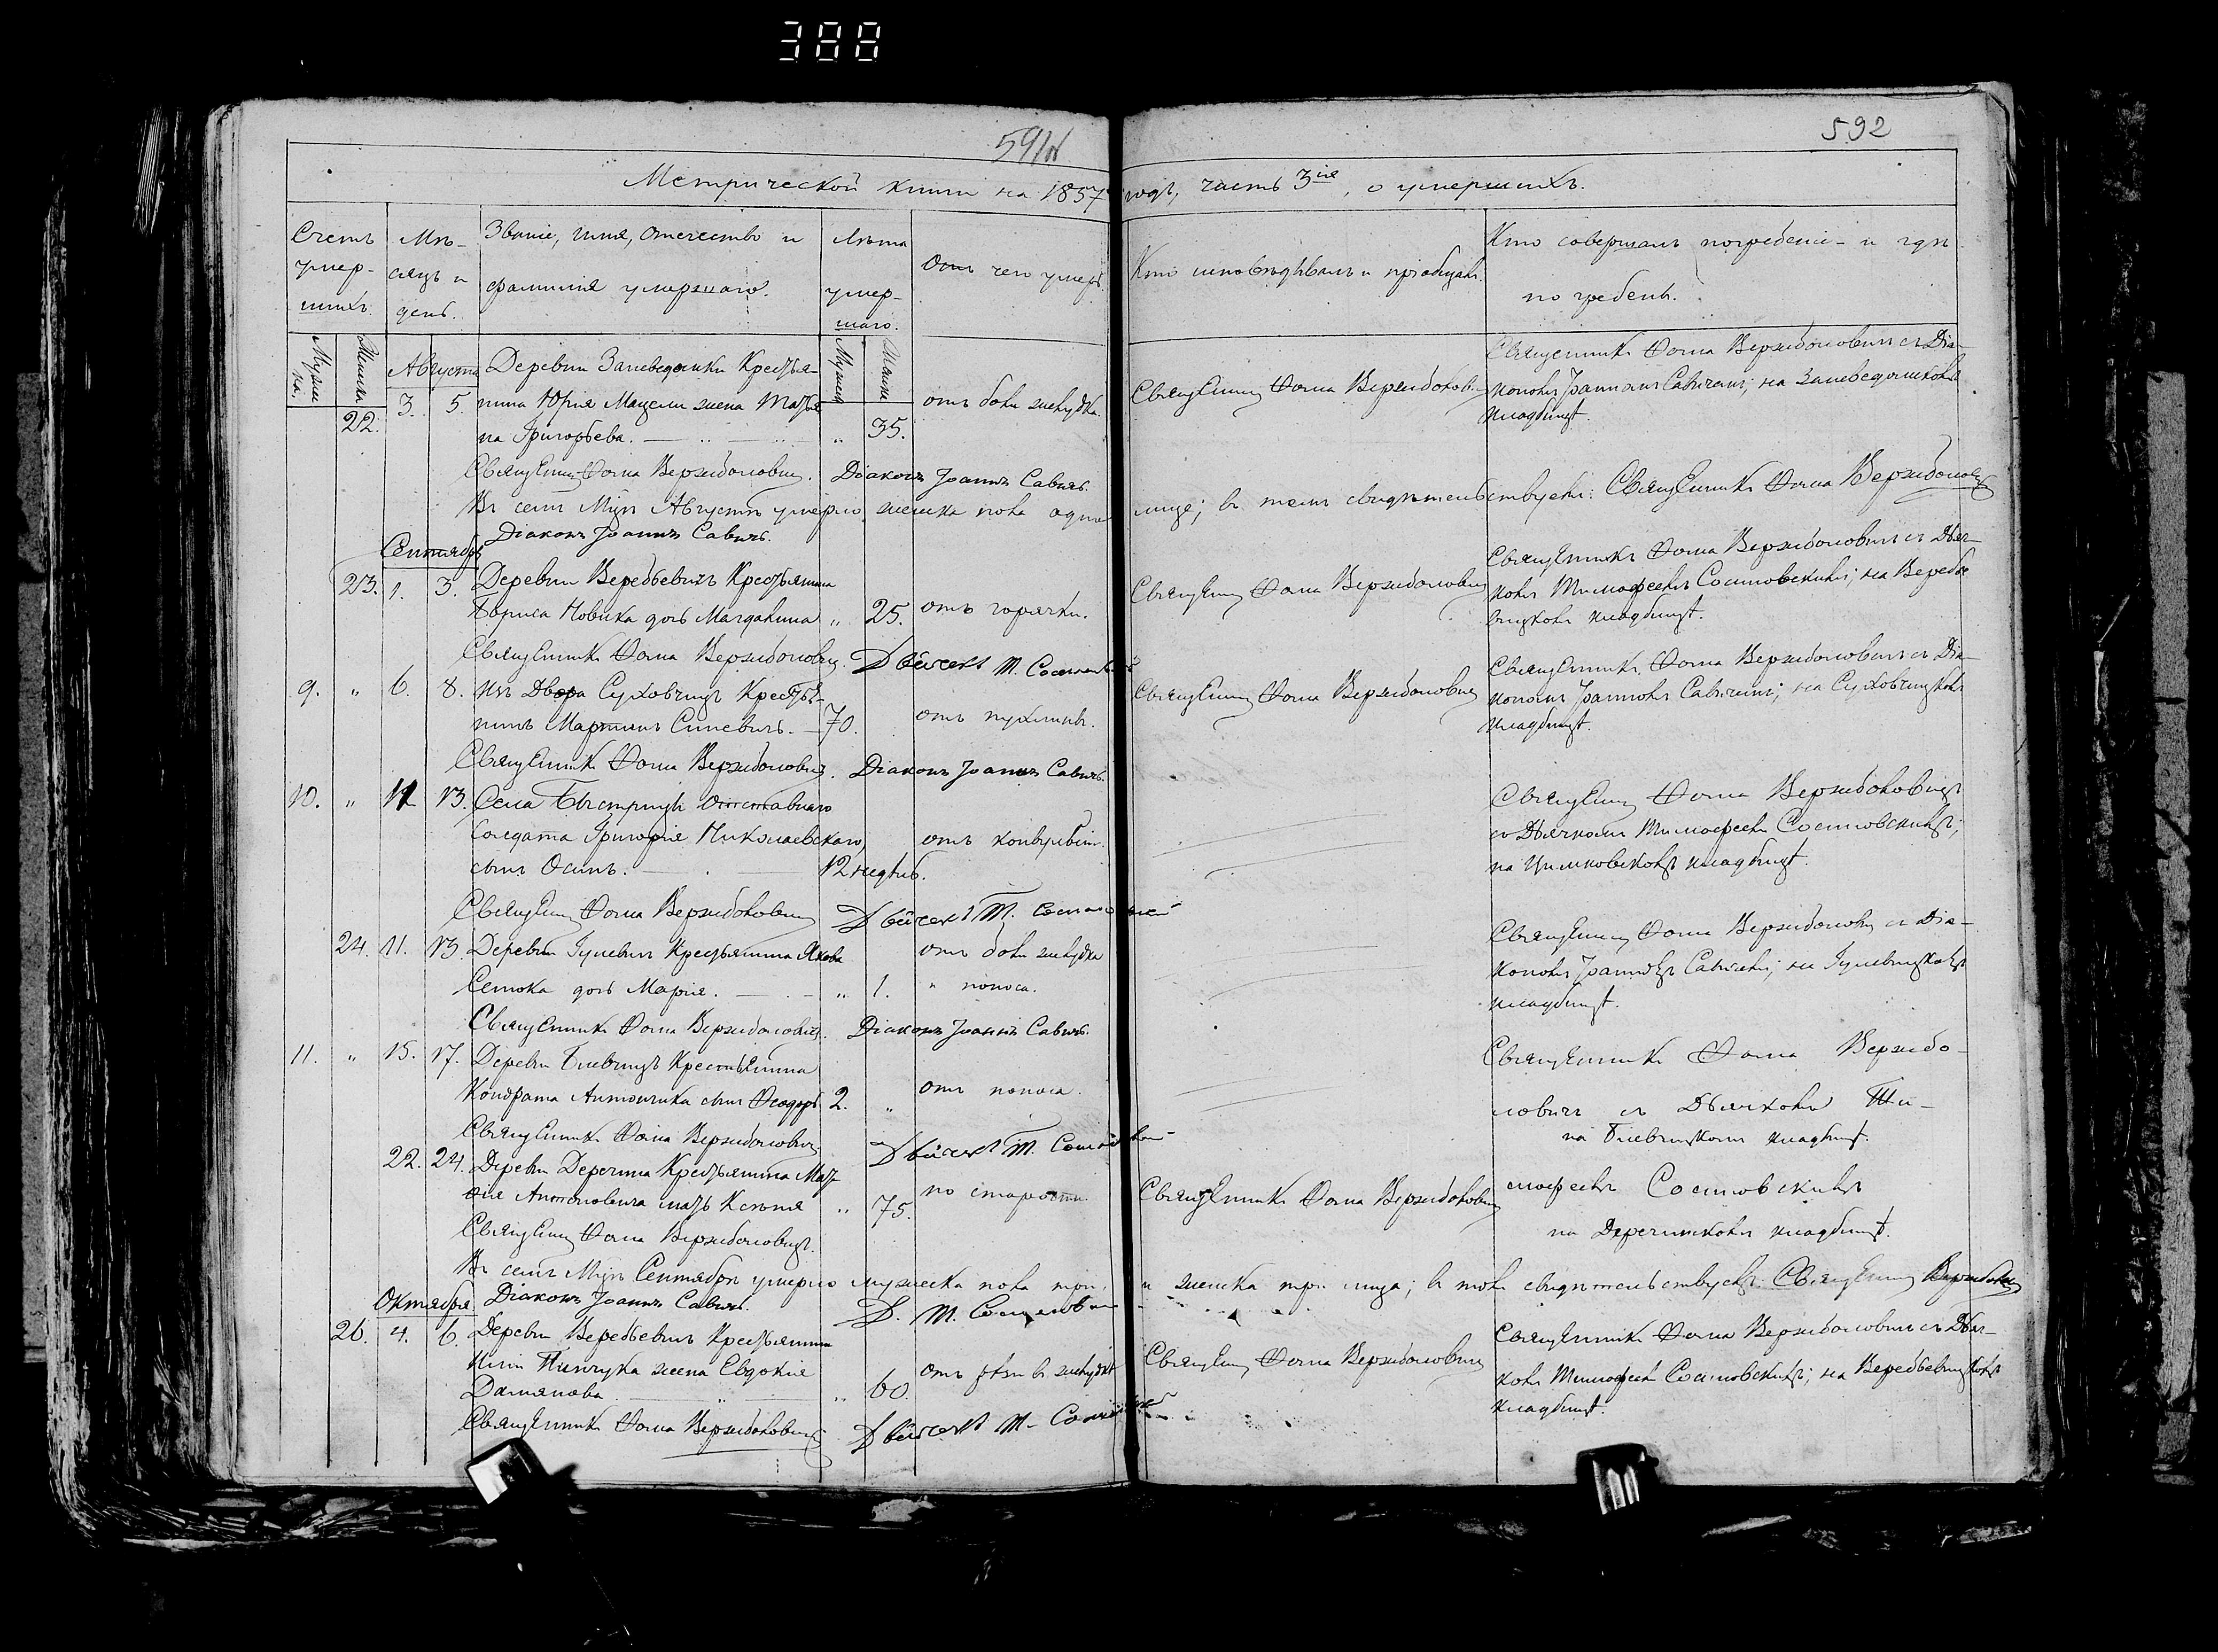 388
591
592
Метрической книги на 1857 годъ, часть 3ія, о умершихъ.
Счетъ умер-шихъ.
Мѣ-сяцъ и день.
Званіе, имя, отечество и фамилія умершаго.
Лѣта умер-шаго.
Отъ чего умеръ.
Кто исповѣдывалъ и пріобщалъ.
Кто совершалъ погребеніе и гдѣ погребенъ.
Мужеска.
Женска
Августа
22. 3. 5.
Деревни Заневодчики Крестья-
нина Юрія Мацели жена Татья
на Григорьева. „ 35.
отъ боли желудка.
Священникъ Фома Вержболовичъ
Священникъ Фома Вержболовичъ съ Діа-
кономъ Іоанномъ Савичемъ; на
кладбищѣ.
Священникъ Фома Вержболовичъ. Діаконъ Іоаннъ Савичъ.
Въ семъ Мцѣ Августѣ умерло женска пола одно лице; въ томъ свидѣтельствуемъ: Священникъ Фома Вержболовичъ
Діаконъ Іоаннъ Савичъ.
Сентябрь
23. 1. 3.
Деревни Веребьевичъ Крестьянина
Бориса Новика дочь Магдалина „ 25.
отъ горячки.
Священникъ Фома Вержболовичъ
Священникъ Фома Вержболовичъ съ Дьяч-
комъ Тимофеемъ Сосновскимъ; на Веребье
вицкомъ кладбищѣ.
Священникъ Фома Вержболовичъ. Дьячекъ Т. Сосновскій
9. „ 6. 8.
Изъ Двора Суховчицъ Крестья-
нинъ Мартинъ Синевичъ. 70.
отъ пухлины.
Священникъ Фома Вержболовичъ
Священникъ Фома Вержболовичъ съ Діа-
кономъ Іоанномъ Савичемъ; на Суховчицкомъ
кладбищѣ.
Священникъ Фома Вержболовичъ. Діаконъ Іоаннъ Савичъ.
10. „ 11 13.
Села Быстрицы Отставнаго
Солдата Григорія Николаевскаго
сынъ Осипъ. 12 недѣль.
отъ конвульсіи.
Священникъ Фома Вержболовичъ
съ Дьячкомъ Тимофеемъ Сосновскимъ;
на кладбищѣ.
Священникъ Фома Вержболовичъ Дьячекъ Т. Сосновскій
24. 11. 13.
Деревни Гулевичъ Крестьянина Якова
Сетока дочь Марія. „ 1.
отъ боли желудка
„ поноса.
Священникъ Фома Вержболовичъ съ Діа-
кономъ Іоанномъ Савичемъ; на Гулевицкомъ
кладбищѣ.
Священникъ Фома Вержболовичъ. Діаконъ Іоаннъ Савичъ.
11. „ 15. 17.
Деревни Крестьянина
Кондрата Антончика сынъ Ѳеодоръ 2. „
отъ поноса.
Священникъ Фома Вержбо-
ловичъ съ Дьячкомъ Ти-
на кладбищѣ.
Священникъ Фома Вержболовичъ Дьячекъ Т. Сосновскій
22. 24.
Деревни Деречина Крестьянина Мат
ѳія Антоновича мать Ксенія „ 75.
по старости.
Священникъ Фома Вержболовичъ
мофеемъ Сосновскимъ
на кладбищѣ.
Священникъ Фома Вержболовичъ.
Въ семъ Мцѣ Сентябрѣ умерло мужеска пола три, и женска три лица; въ томъ свидѣтельствуемъ: Священникъ Вержболовичъ
Діаконъ Іоаннъ Савичъ. Д. Т. Сосновскій
Октября
26. 4. 6.
Деревни Веребьевичъ Крестьянина
Пинчука жена Евдокія
Даміянова „ 60.
отъ въ желудкѣ
Священникъ Фома Вержболовичъ
Священникъ Фома Вержболовичъ съ Дьяч-
комъ Тимофеемъ Сосновскимъ; на Веребьевицкомъ
кладбищѣ.
Священникъ Фома Вержболовичъ Дьячекъ Т. Сосновскій